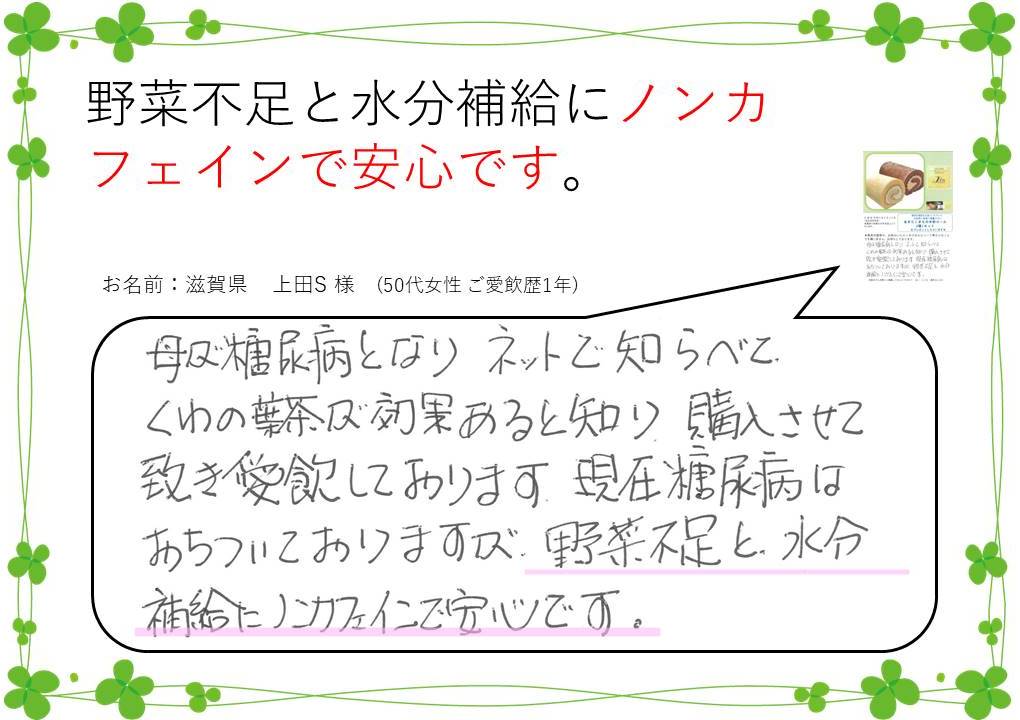 野菜不足と水分補給にノンカ
フェインで安心です。
お名前：滋賀県 上田S 様 (50代女性 ご愛飲歴1年)
母が糖尿病となり ネットで知らべて
くわの葉茶が効果あると知り 購入させて
致き愛飲しております 現在糖尿病は
おちついておりますが 野菜不足と 水分
補給にノンカフェインで安心です。